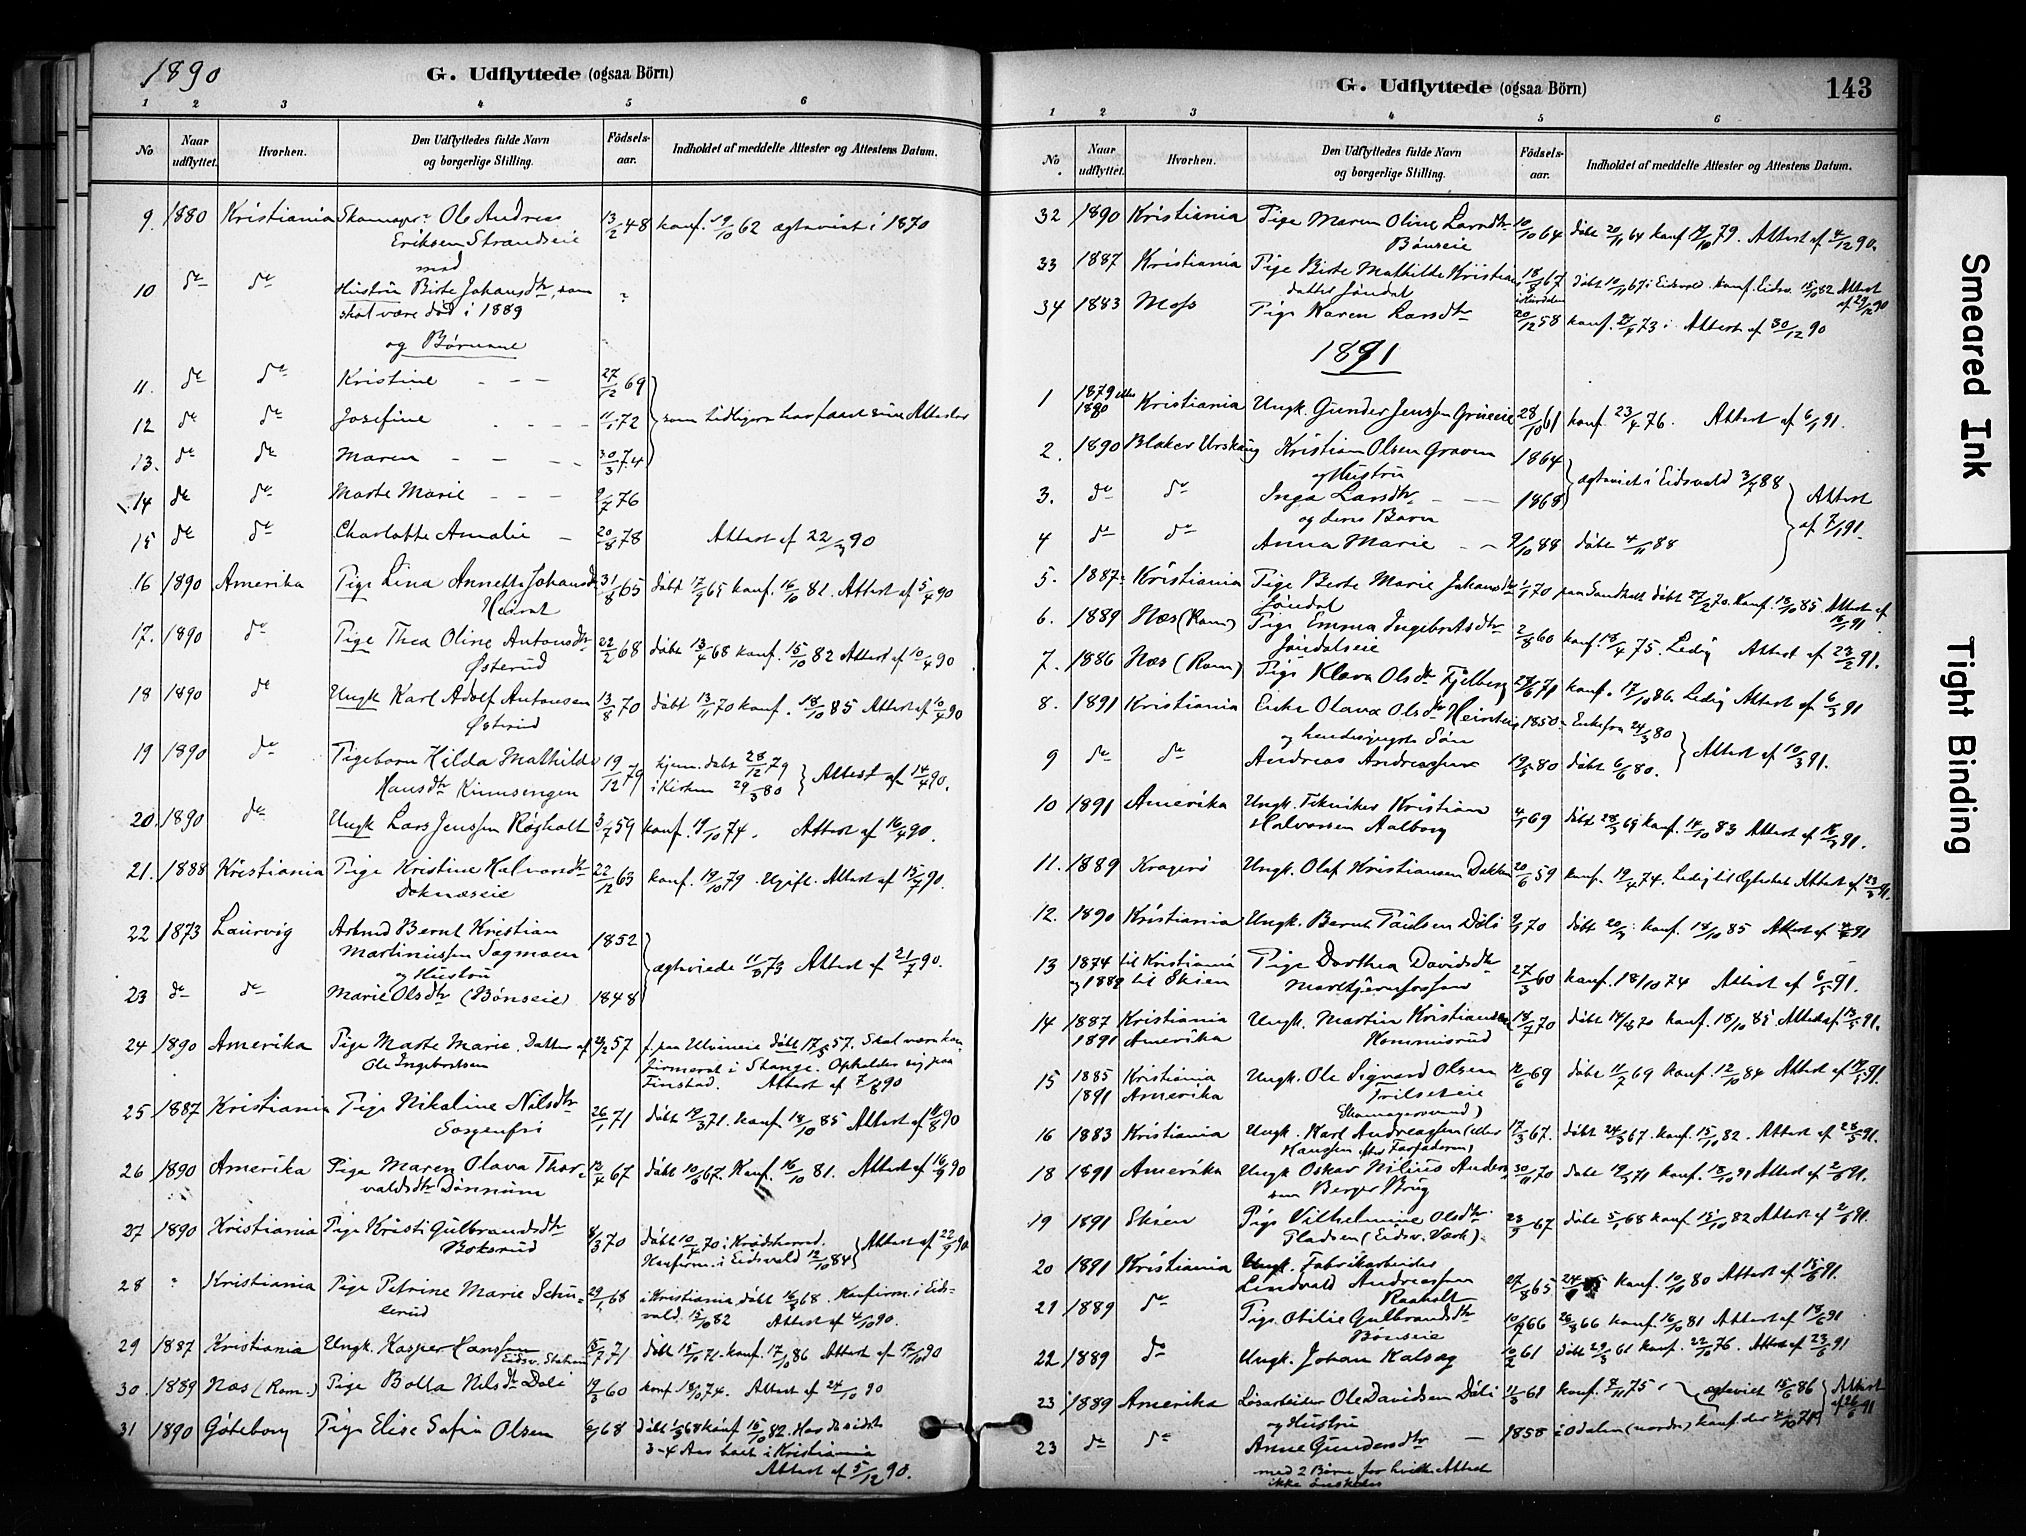 1890
G. Udflyttede (ogsaa Börn)
1 2 3 4 5 6
No Naar udflyttet. Hvorhen. Den Udflyttedes fulde Navn og borgerlige Stilling. Födsels-aar. Indholdet af meddelte Attester og Attestens Datum.
9. 1880 Kristiania Ole Andreas 13/2 48 konf. 19/10 62 ægteviet i 1870
Eriksen Strandseie
med
10 do do Hustru Birte Johansdtr, som "
skal være död i 1889
og Børnene
11. do do Kristine - - - 27/12 69
12 do do Josefine - - - - 11/1 72 som tidligere har faaet sine Attester
13. do do Maren - - - - 30/3 74
14 do do Marte Marie - - - 9/7 76
15 do do Charlotte Amalie - 20/8 78 Attest af 22/3 90
16 1890 Amerika Pige Lina Annette Johansdtr 31/8 65 döbt 17/9 65 konf. 16/10 81. Attest af 5/4 90
17. 1890 do Pige Thea Oline Antonsdtr 22/2 68 döbt 13/4 68 konf. 15/10 82 Attest af 10/4 90
Østerud
18 1890 do Ungk Karl Adolf Antonsen 13/8 70 döbt 13/11 70 konf. 18/10 85 Attest af 10/4 90
Østerud
19 1890 do Pigebarn Hilda Mathilde 19/12 79 hjem. döbt 28/12 79
Hansdtr i Kirken 29/3 80 Attest af 14/4 90.
20. 1890 do Ungk Lars Jenssen Røgholt 3/7 59 konf. 19/10 74. Attest af 16/4 90.
21. 1888 Kristiania Pige Kristine Halvorsdtr 22/12 63 konf. 19/10 79. Ugift. Attest af 15/7 90.
Doknæseie
22 1873 Laurvig Bernt Kristian 1852
Martiniussen Sagmoen
og Hustru ægteviede 11/3 73 Attest af 21/7 90.
23 do do Marie Olsdtr (Bönseie) 1848
24 1890 Amerika Pige Marte Marie. Datter af 57 f. paa Ulvineie döbt 17/5 57. Skal være kon-
Ole Ingebretsen firmeret i Stange. Opholder sig paa
Finstad. Attest af 7/8 90
25 1887 Kristiania Pige Nikoline Nilsdtr 26/1 71 döbt 19/3 71. konf. 18/10 85 Attest af 11/8 90
Sorgenfri
26 1890 Amerika Pige Maren Olava Thor- 12/4 67 döbt 10/6 67. Konf. 16/10 81. Attest af 16/9 90
valdsdtr Dönnum
27 1890 Kristiania Pige Kristi Gulbrandsdtr 8/3 70 döbt 10/4 70 i Krödsherred.
Boksrud Konfirm. i Eidsvold 12/10 84 Attest af 22/9 90
28 " Kristiania Pige Petrine Marie Schu- 29/1 68 i Kristiania döbt 16/3 68. Konfirm. i Eids-
lerud vold 15/10 82 Attest af 4/10 90.
29 1887 Kristiania Ungk. Kasper Hanssen 15/7 71 döbt 15/10 71. konf. 17/10 86 Attest af 17/10 90
Eidsv. Station
30. 1889 Næs (Rom.) Pige Bolla Nilsdtr Döli 19/3 60 konf 18/10 74. Attest af 24/10 90
31 1890 Göteborg Pige Elise Sofie Olsen 6/1 68 döbt 1/3 68 konf. 15/10 82. Har de sidste
3-4 Aar boet i Kristiania
Attest af 5/12 90.
G. Udflyttede (ogsaa Börn) 143
1 2 3 4 5 6
No. Naar udflyttet. Hvorhen. Den Udflyttedes fulde Navn og borgerlige Stilling. Födsels-aar. Indholdet af meddelte Attester og Attestens Datum.
32 1890 Kristiania Pige Maren Oline Larsdtr 10/10 64 döbt 20/11 64 konf 19/10 79. Attest af 4/12 90.
Bönseie
33 1887 Kristiania Pige Birte Mathilde Kristians 18/8 67 döbt 10/11 67 i Eidsvold. konf. Eidsv. 15/10 82 Attest
datter Jöndal af 29/12 90
34 1883 Moss Pige Karen Larsdtr 20/12 58 konf. 27/4 73 i Attest af 30/12 90
1891
1 1879 eller
1880 Kristiania Ungk. Gunder Jenssen Grüeie 28/10 61 konf. 23/4 76. Attest af 6/1 91.
2. 1890 Blaker Urskoug Kristian Olsen Graven 1864
og Hustru ægteviet i Eidsvold 3/7 88
3. do do Inga Larsdtr - - 1868 Attest
og deres Barn af 7/1 91.
4 do do Anna Marie - - 9/10 88 döbt 4/11 88
5. 1887 Kristiania Pige Berte Marie Johansdtr 1/1 70 paa Sandholt döbt 27/2 70. Konf. 18/10 85. Attest af
Jöndal 91
6. 1889 Næs (Rom) Pige Emma Ingebretsdtr 2/8 60 konf. 18/4 75. Ledig Attest af 23/2 91.
Jöndalseie
7. 1886 Næs (Rom) Pige Klara Olsdtr Fjelberg 27/6 71 konf. 17/10 86. Ledig Attest af 6/3 91
8. 1891 Kristiania Enke Olava Olsdtr 1850 Enke fra 24/3 80
og hendes yngste Sön Attest af 10/3 91.
9 do do Andreas Andreassen 19/5 80 döbt 6/6 80.
10 1891 Amerika Ungk. Tekniker Kristian 4/1 69 döbt 28/3 69 konf. 14/10 83 Attest af 18/3 91.
Halvorsen Aalborg
11. 1889 Kragerö Ungk. Olaf Kristiansen Dokken 20/6 59 konf. 19/4 74. Ledig til Ægteskab Attest af 23/3 91.
12. 1890 Kristiania Ungk. Bernt Paulsen Döli 9/1 70 döbt 20/3 konf. 18/10 85 Attest af 91
13 1874 til Kristiania Pige Dorthea Davidsdtr 27/3 60 konf. 18/10 74 Attest af 6/5 91.
og 1882 til Skien
14 1887 Kristiania Ungk. Martin Kristiansen 18/7 70 döbt 14/8 70 konf. 18/10 85 Attest af 13/5 91.
1891 Amerika Hommisrud
15 1885 Kristiania Ungk. Ole Sigvard Olsen 12/6 69 döbt 11/7 69 konf. 12/10 84 Attest af 19/5 91.
1891 Amerika Trilseteie
Skomagersvend)
16 1883 Kristiania Ungk. Karl Andreassen (eller 17/3 67. döbt 24/3 67. konf. 15/10 82. Attest af 28/5 91.
Hansen efter Farfaderen)
18 1891 Amerika Ungk Oskar Nilius Anders- 30/11 70 döbt 19/3 71 konf. 18/10 91 Attest af 2/6 91.
sen Berger Brug
19 1891 Skien Pige Vilhelmine Olsdtr 67 döbt 5/1 68 konf. 15/10 82 Attest af 2/6 91.
Pladsen (Eidsv. Værk)
20 1891 Kristiania Ungk. Fabrikarbeider
Lindvald Andreassen 27/8 65 konf. 10/10 80 Attest af 15/6 91.
Raaholt
21 1889 do Pige Otilie Gulbrandsdtr 10/7 66 26/8 66 konf. 16/10 81 Attest af 18/6 91
Bönseie
22 1889 do Ungk. Johan Kalsæg 10/2 61 döbt 29/3 61 konf. 22/10 76. Attest af 23/6 91
23 1889 Amerika Løsarbeider Ole Davidsen Döli 11/3 61 konf. 7/11 75. ægteviet 15/6 86 Attest
og Hustru af 26/6 91
23 do do Anne Gundersdtr - 1858 i Odalen (nordre) konf. der
med 2 Børn for hvilke Attest
ikke önskedes
Smeared Ink
Tight Binding